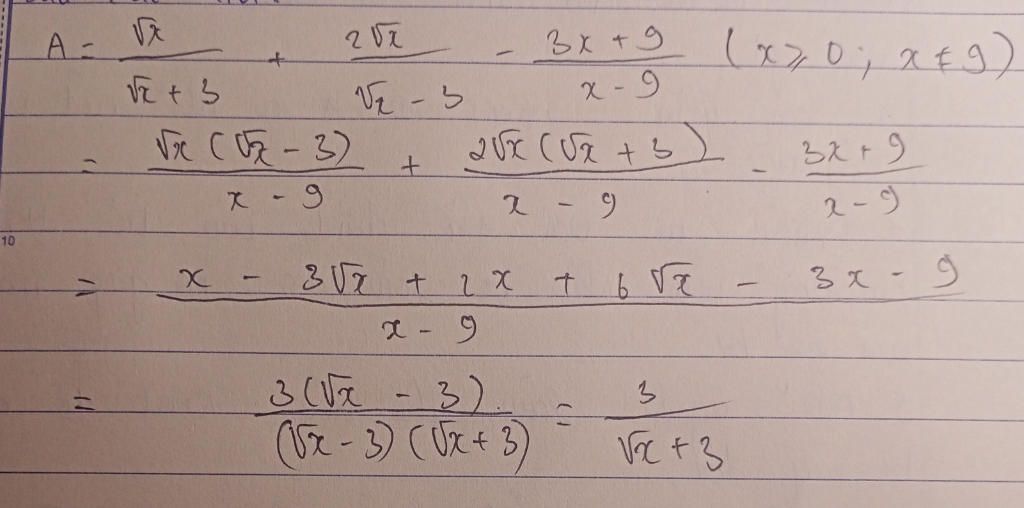 A = √x / (√x + 3) + 2√x / (√x - 3) - (3x + 9) / (x - 9) (x ⩾ 0; x ≠ 9)
= √x (√x - 3) / (x - 9) + 2√x (√x + 3) / (x - 9) - (3x + 9) / (x - 9)
10
= (x - 3√x + 2x + 6√x - 3x - 9) / (x - 9)
= 3(√x - 3) / ((√x - 3)(√x + 3)) = 3 / (√x + 3)